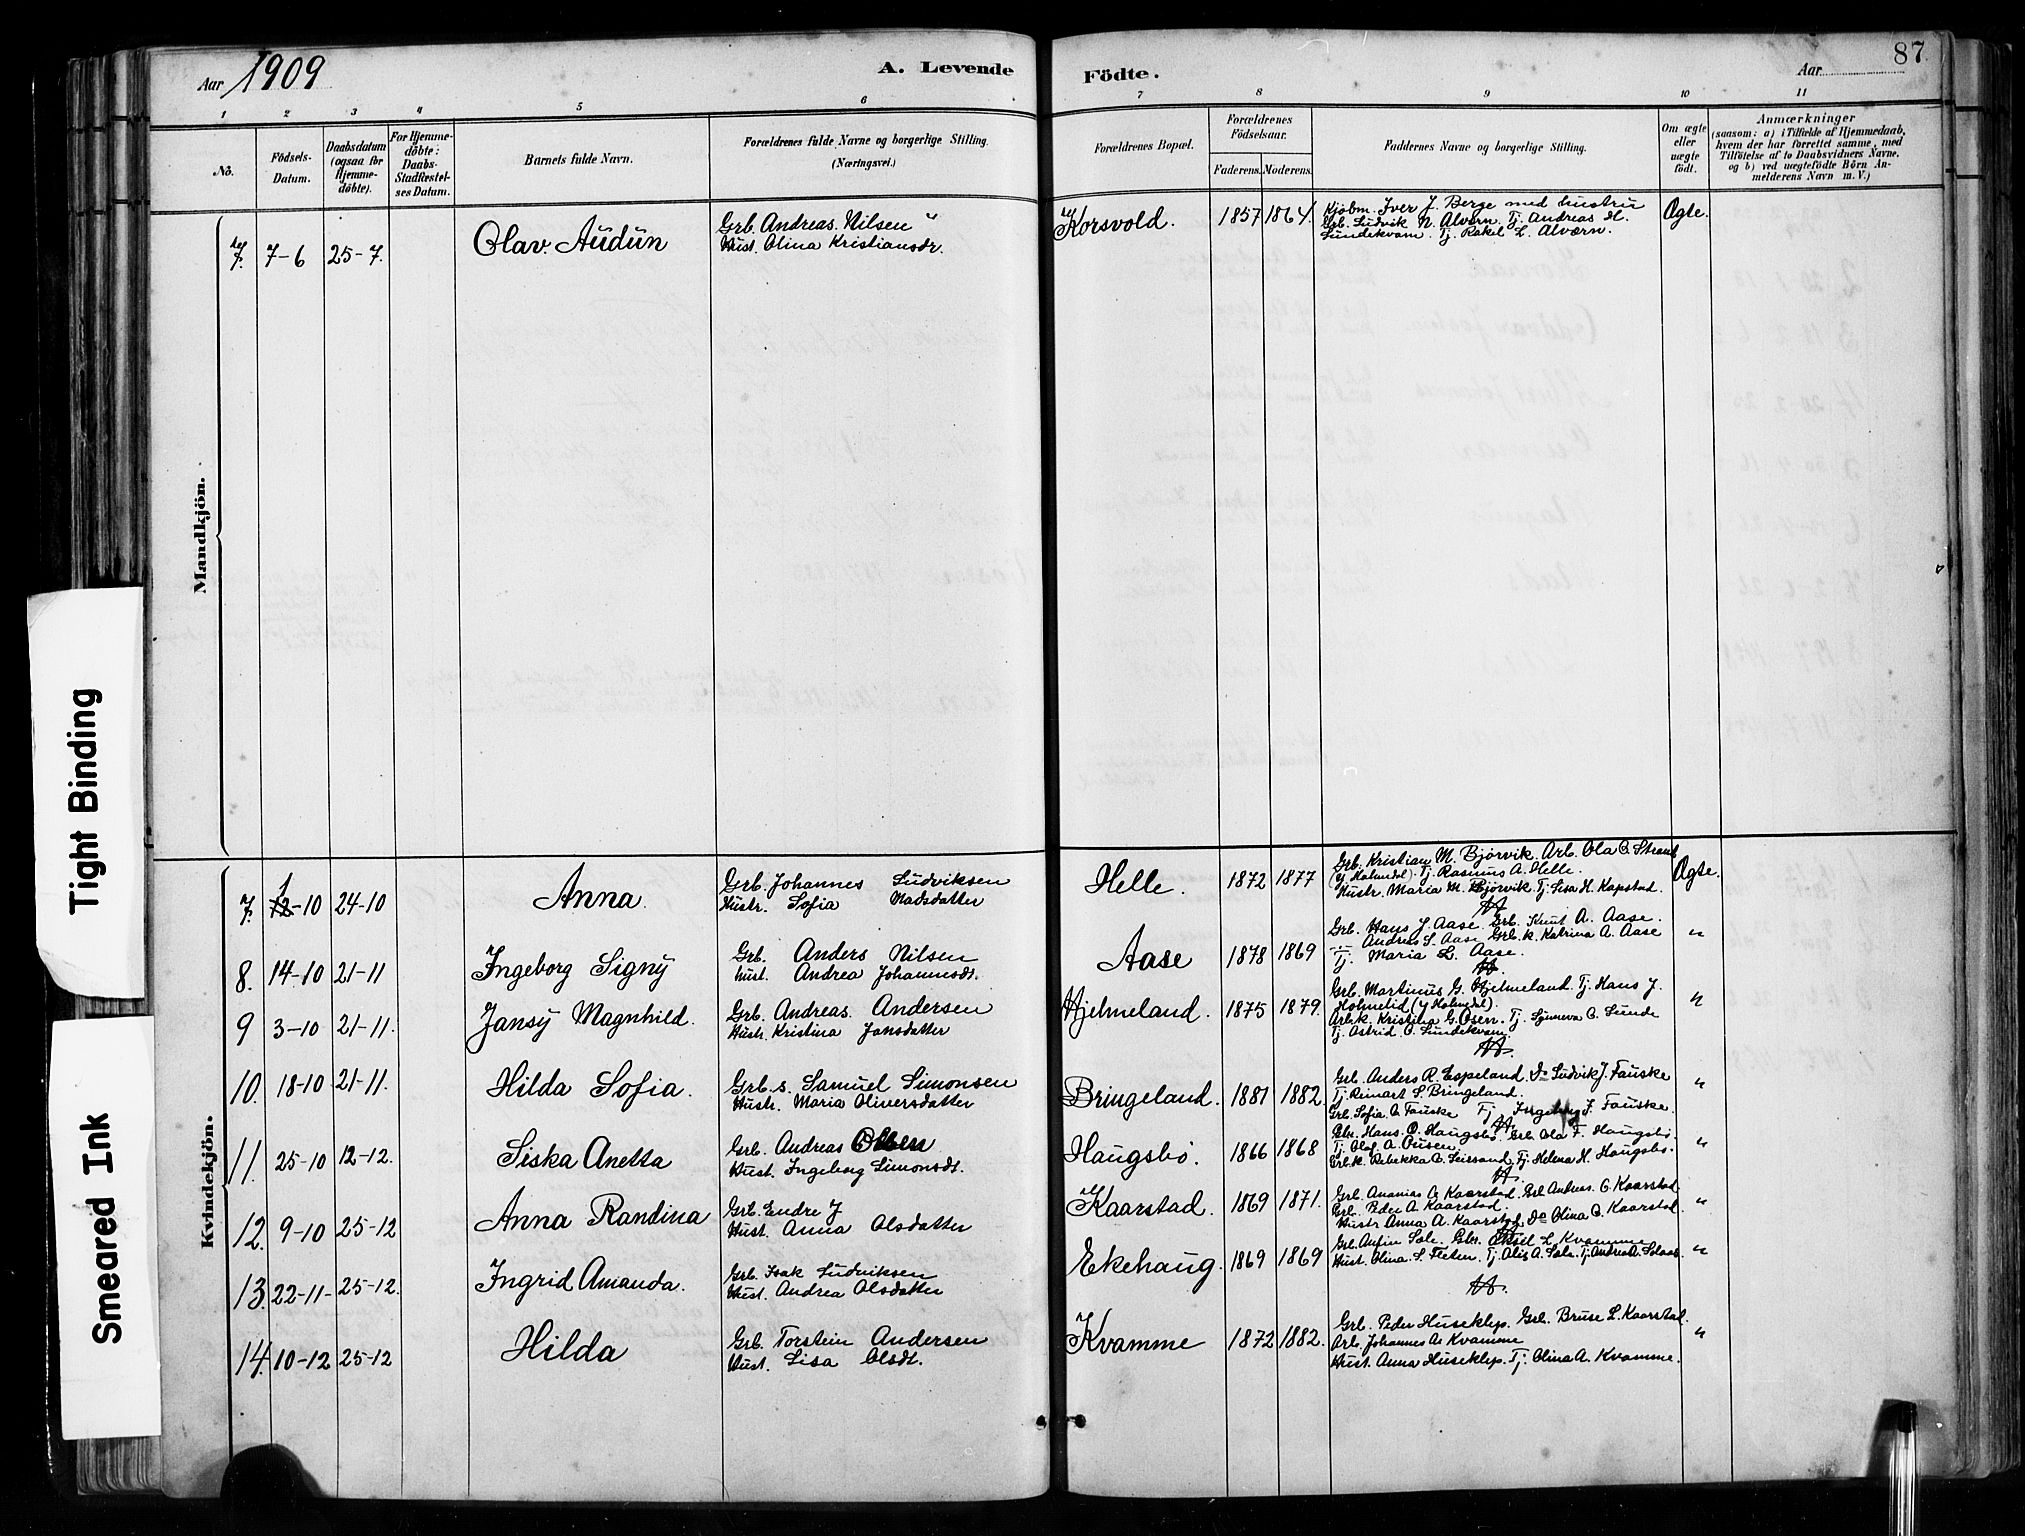 Aar 1909
A. Levende Födte.
Aar 87
1 2 3 4 5 6 7 8 9 10 11
No.
Födsels-Datum.
Daabsdatum (ogsaa for Hjemme-döbte).
For Hjemme-döbte: Daabs-Stadfæstel-ses Datum.
Barnets fulde Navn.
Forældrenes fulde Navne og borgerlige Stilling.
(Næringsvei.)
Forældrenes Bopæl.
Forældrenes Födselsaar.
Faderens. Moderens.
Faddernes Navne og borgerlige Stilling.
Om ægte eller uægte födt.
Anmærkninger
(saasom: a) i Tilfælde af Hjemmedaab,
hvem der har forrettet samme, med
Tilföielse af to Daabsvidners Navne,
og b) ved uægtefödte Börn An-
melderens Navn m. V.)
Mandkjön.
7. 7-6 25-7. Olav Audun
Grb. Andreas Nilsen
Hust. Olina Kristiansdr.
Korsvold. 1857 1864
Kjøbm. Iver J. Berge med hustru
Grb. Ludvik N. Alvern. Tj. Andreas M.
Sundekvam. Tj. Rakil L. Alværn.
Ægte.
Kvindekjön.
7. 12-10 24-10 Anna.
1
Grb. Johannes Ludviksen
Hustr. Sofia Madsdatter
Helle. 1872 1877
Grb. Kristian M. Bjørvik. Arb. Ola O. Strand
(y Holmedal). Tj. Rasmus A. Helle.
Hustr. Maria M. Bjørvik. Tj. Lisa H. Kapstad.
Ægte.
8. 14-10 21-11 Ingeborg Signy
Grb. Anders Nilsen
Hust. Andrea Johannesdt.
Aase 1878 1869
Grb. Hans J. Aase. Grb. Knut A. Aase.
Andreas S. Aase Grb.k. Katrina A. Aase
Tj. Maria L. Aase.
"
9 3-10 21-11. Jansy Magnhild.
Grb. Andreas. Andersen
Hustr. Kristina Jansdatter
Hjelmeland. 1875 1879.
Grb. Martinus G. Hjelmeland. Tj. Hans J.
Holmelid (y Holmedal).
Arb.k. Kristina G. Osen. Tj. Synneva O. Sunde
Tj. Astrid O. Sundekvam.
"
10. 18-10 21-11. Hilda Sofia.
Grb.s. Samuel Simonsen
Hustr. Maria Oliversdatter
Bringeland. 1881 1882.
Grb. Anders R. Espeland. Do Ludvik J. Fauske
Tj. Reinart S. Bringeland.
Grb. Sofia O. Fauske Tj. Ingeborg J. Fauske.
"
11. 25-10 12-12. Siska Anetta
Grb. Andreas Olsen
Hust. Ingeborg Simonsdt.
Haugsbø. 1866 1868
Gbr. Hans O. Haugsbø. Grb. Ola F. Haugsbø.
Tj. Olaf A. Ousen
Grb.k. Rebekka O. Leirsand, Tj. Helena H. Haugsbø.
"
12. 9-10 25-12 Anna Randina
Grb. Endre J
Hust. Anna Olsdatter
Kaarstad. 1869 1871.
Grb. Ananias A. Kaarstad. Grb. Andreas O. Kaarstad
Grb. Peder A. Kaarstad.
Hustr Anna A. Kaarstad, Do Olina O. Kaarstad.
"
13. 22-11- 25-12. Ingrid Amanda.
Grb. Isak Ludviksen
Hust. Andrea Olsdatter
Ekehaug. 1869 1869
Grb. Anfin Sæle. Gbr. Aksel L Kvamme
Hust. Olina S. Fleten. Tj. Alis A. Sæle. Tj.
"
14. 10-12 25-12 Hilda
Grb Torstein Andersen
Hust. Lisa Olsdt.
Kvamme 1872 1882.
Grb. Peder Huseklep. Grb. Bruse L. Kaarstad.
Arb. Johannes A. Kvamme
Hust. Anna Huseklep. Tj. Olina A. Kvamme.
"
Tight Binding
Smeared Ink